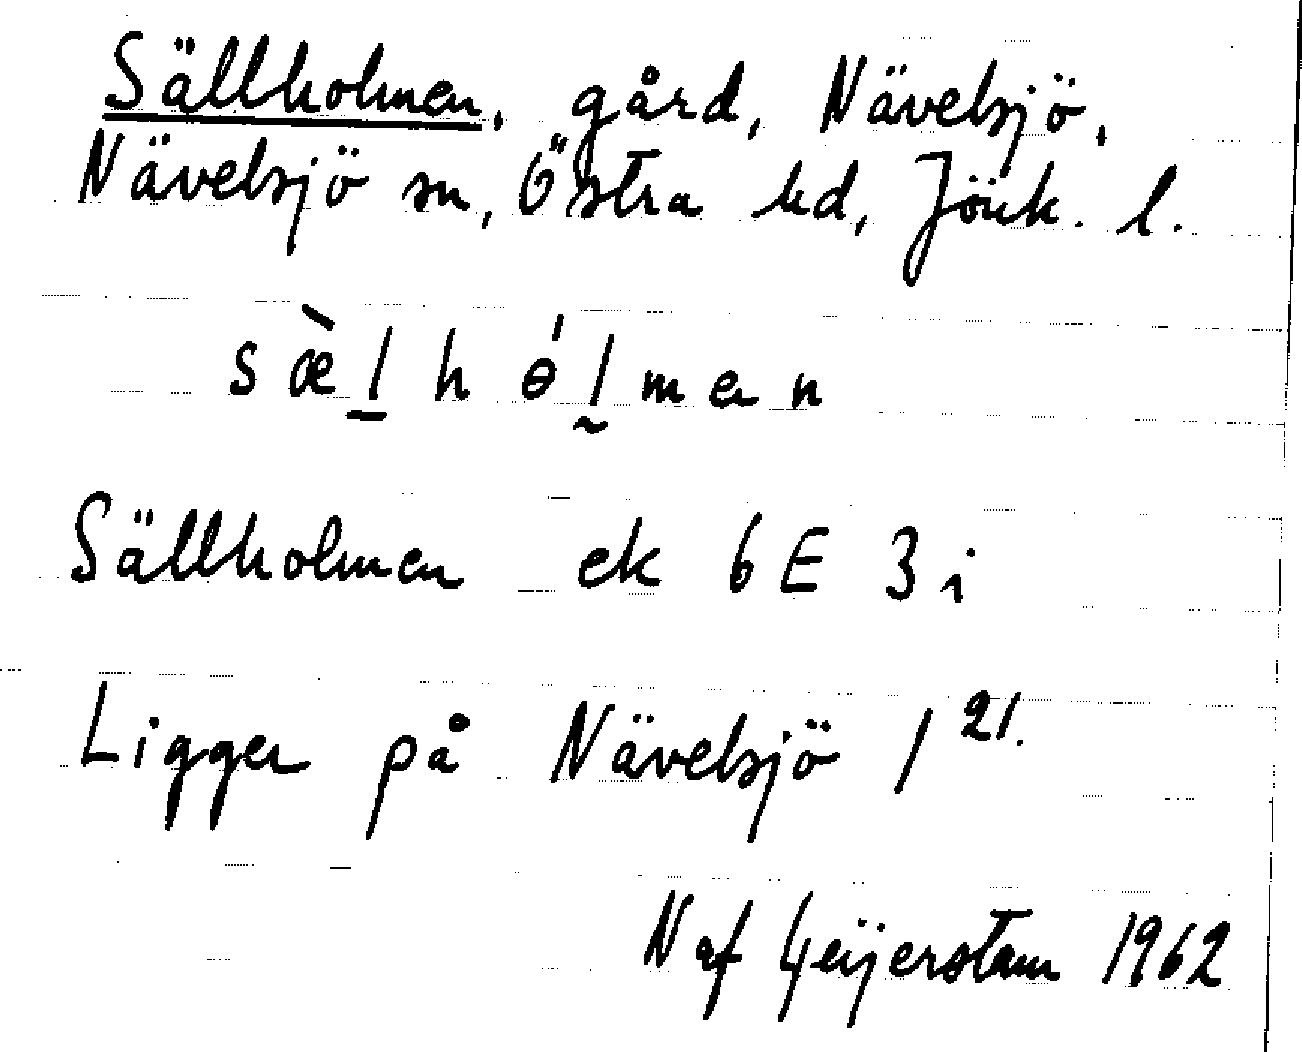 Sällholmen, gård, Nävelsjö,
Nävelsjö sn, Östra hd, Jönk. l.
sæ̀l̠ hɵ́l̰men
Sällholmen ek 6E 3i
Ligger på Nävelsjö 1²¹.
N af Geijerstam 1962